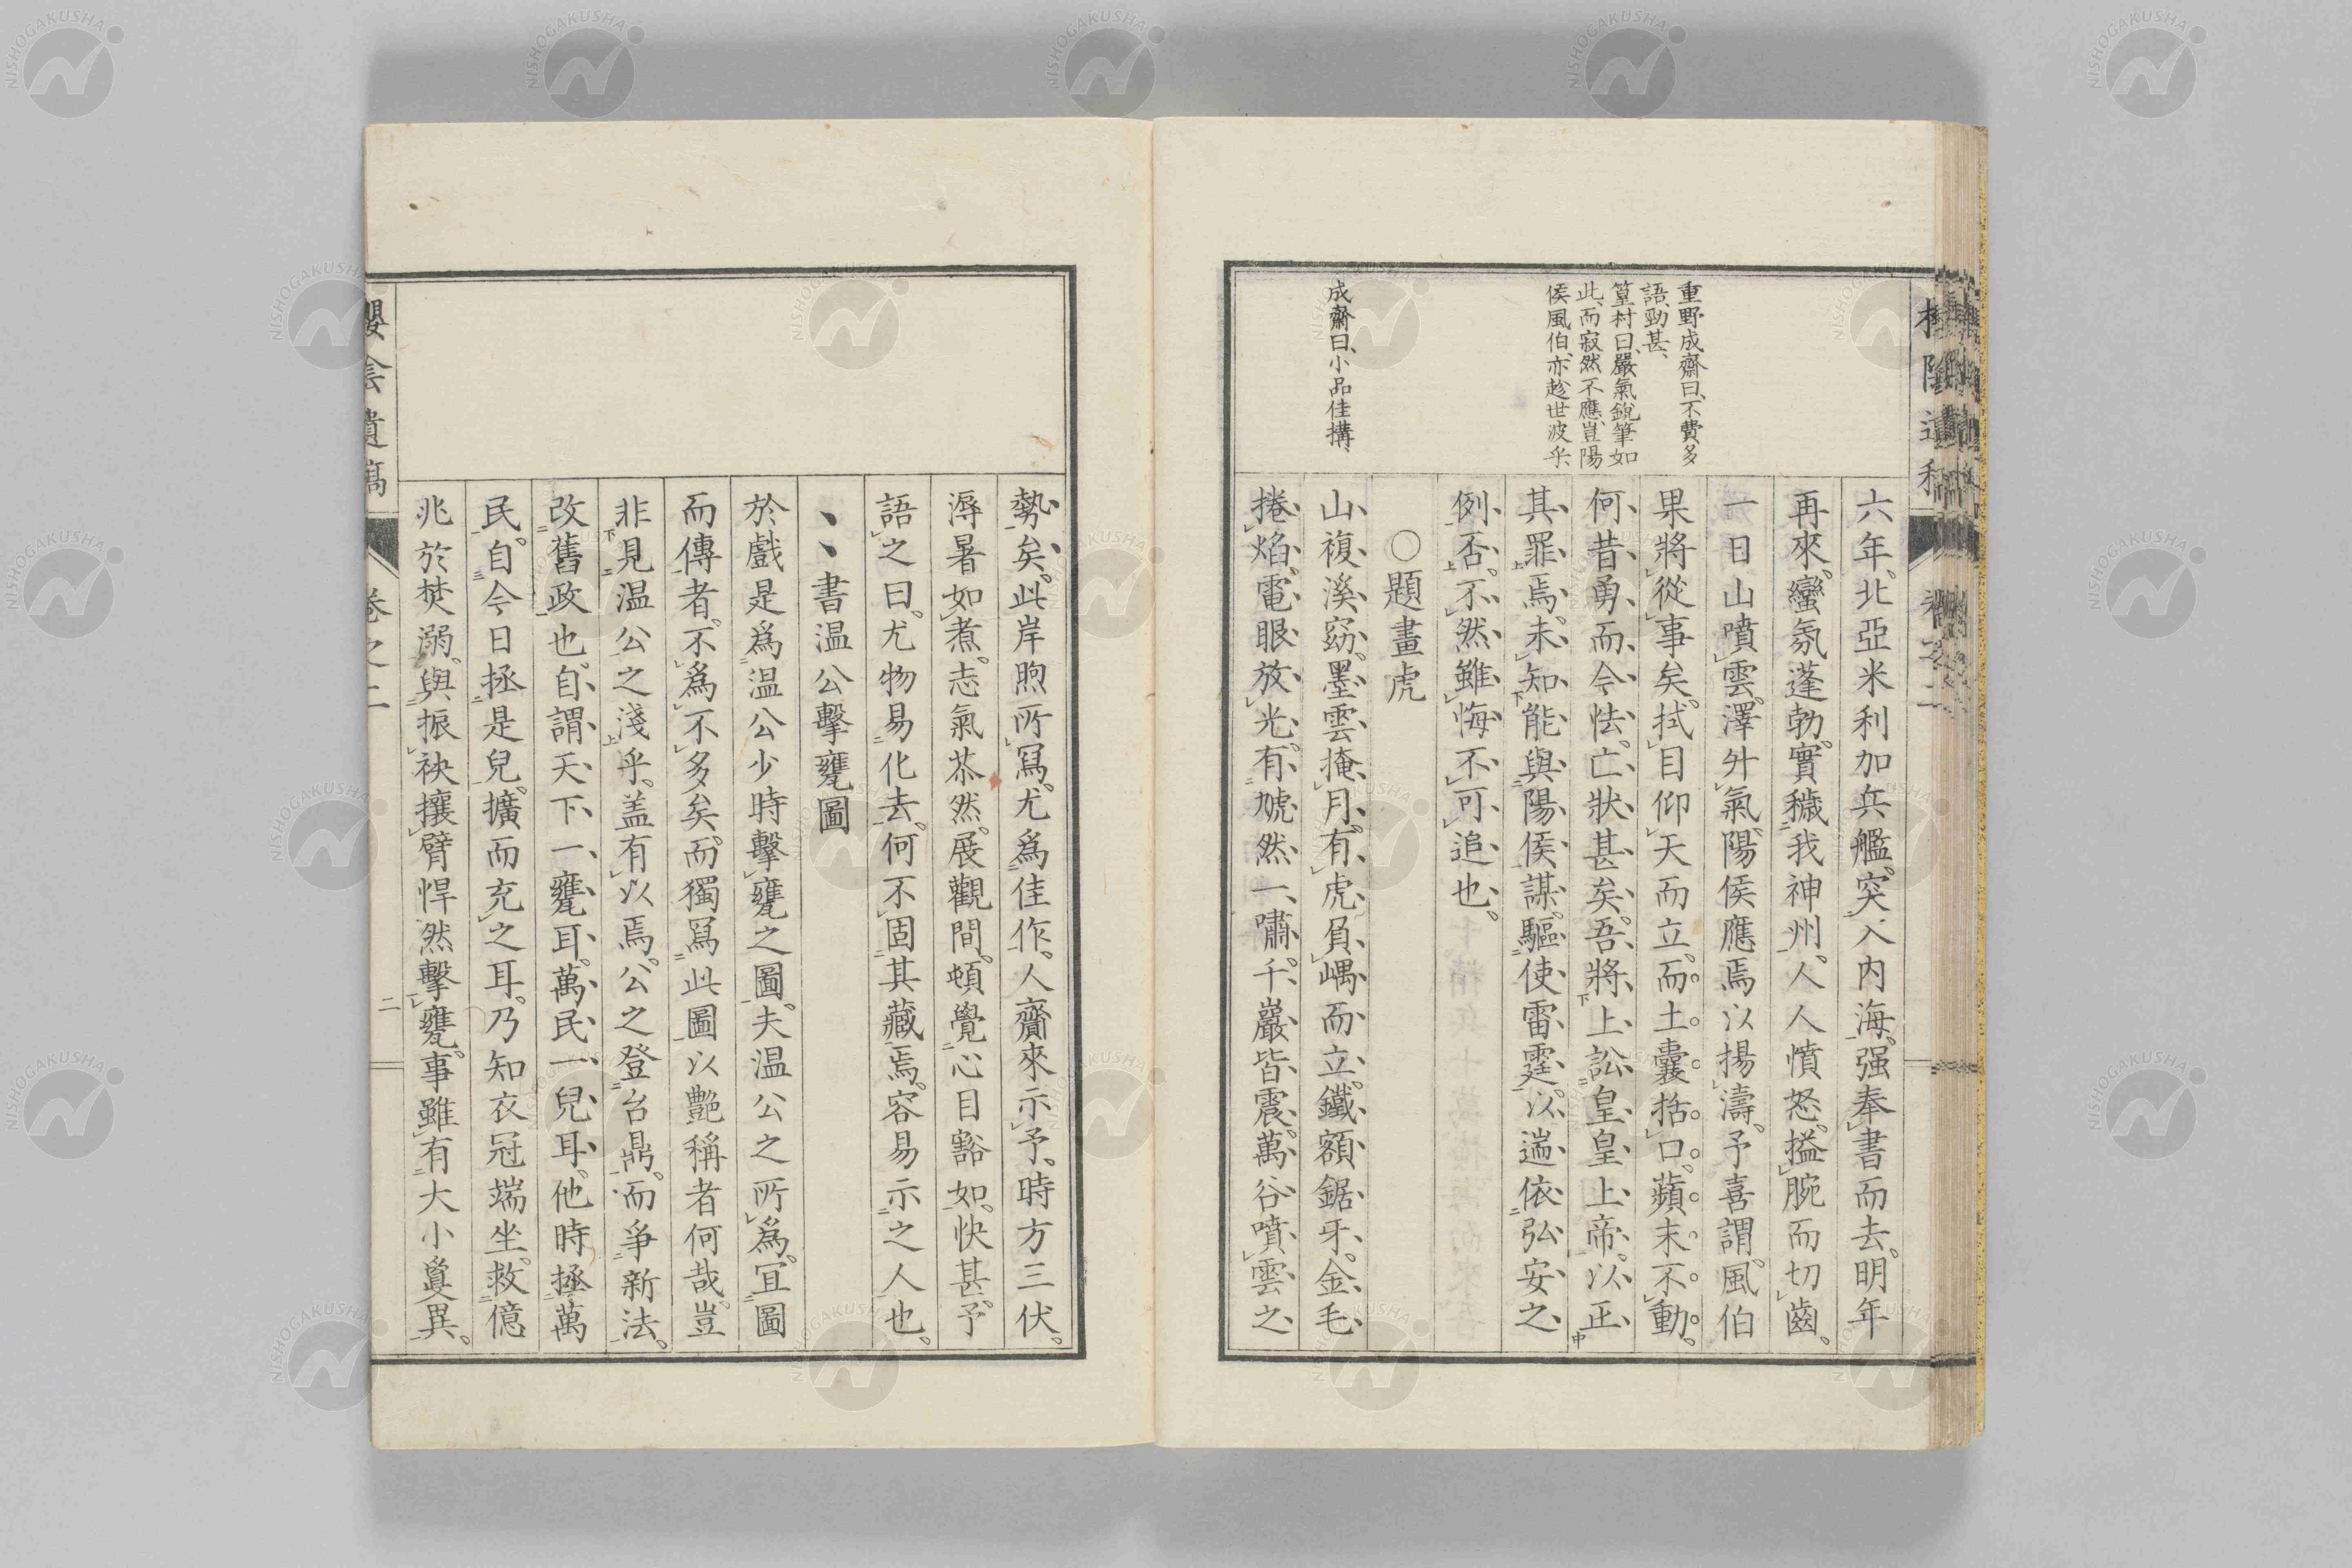 重野成齋曰、不費多
語、勁甚、
篁村曰、嚴氣銳筆如
此、而寂然不應、豈陽
侯風伯、亦趁世波乎、
成齋曰、小品佳搆、
六年。北亞米利加兵艦。突入內海。强奉書而去。明年
再來。蠻氛蓬勃。實穢我神州。人人憤怒。搤腕而切齒。
一日山噴雲。澤升氣。陽侯應焉以揚濤。予喜謂。風伯
果將從事矣。拭目仰天而立。而土囊括口。蘋末不動。
何昔勇而今怯。亡狀甚矣。吾將上訟皇皇上帝。以正
其罪焉。未知能與陽侯謀。驅使雷霆。以遄依弘安之
例否。不然雖悔不可追也。
○題畫虎
山複溪窈。墨雲掩月。有虎負嵎而立。鐵額鋸牙。金毛
捲焰。電眼放光。有虓然一嘯。千巖皆震。萬谷噴雲之
勢矣。此岸煦所寫。尤爲佳作。人齎來示予。時方三伏。
溽暑如煮。志氣苶然。展觀間。頓覺心目豁如。快甚。予
語之曰。尤物易化去。何不固其藏焉。容易示之人也。
、、書温公擊甕圖
於戲是爲温公少時擊甕之圖。夫温公之所爲。宜圖
而傳者。不爲不多矣。而獨寫此圖以艷稱者何哉。豈
非見温公之淺乎。盖有以焉。公之登台鼎。而爭新法。
改舊政也。自謂天下一甕耳。萬民一兒耳。他時拯萬
民。自今日拯是兒。擴而充之耳。乃知衣冠端坐。救億
兆於焚溺。與振袂攘臂悍然擊甕。事雖有大小異。
櫻陰遺稿
卷之二
二
NISHOGAKUSHA